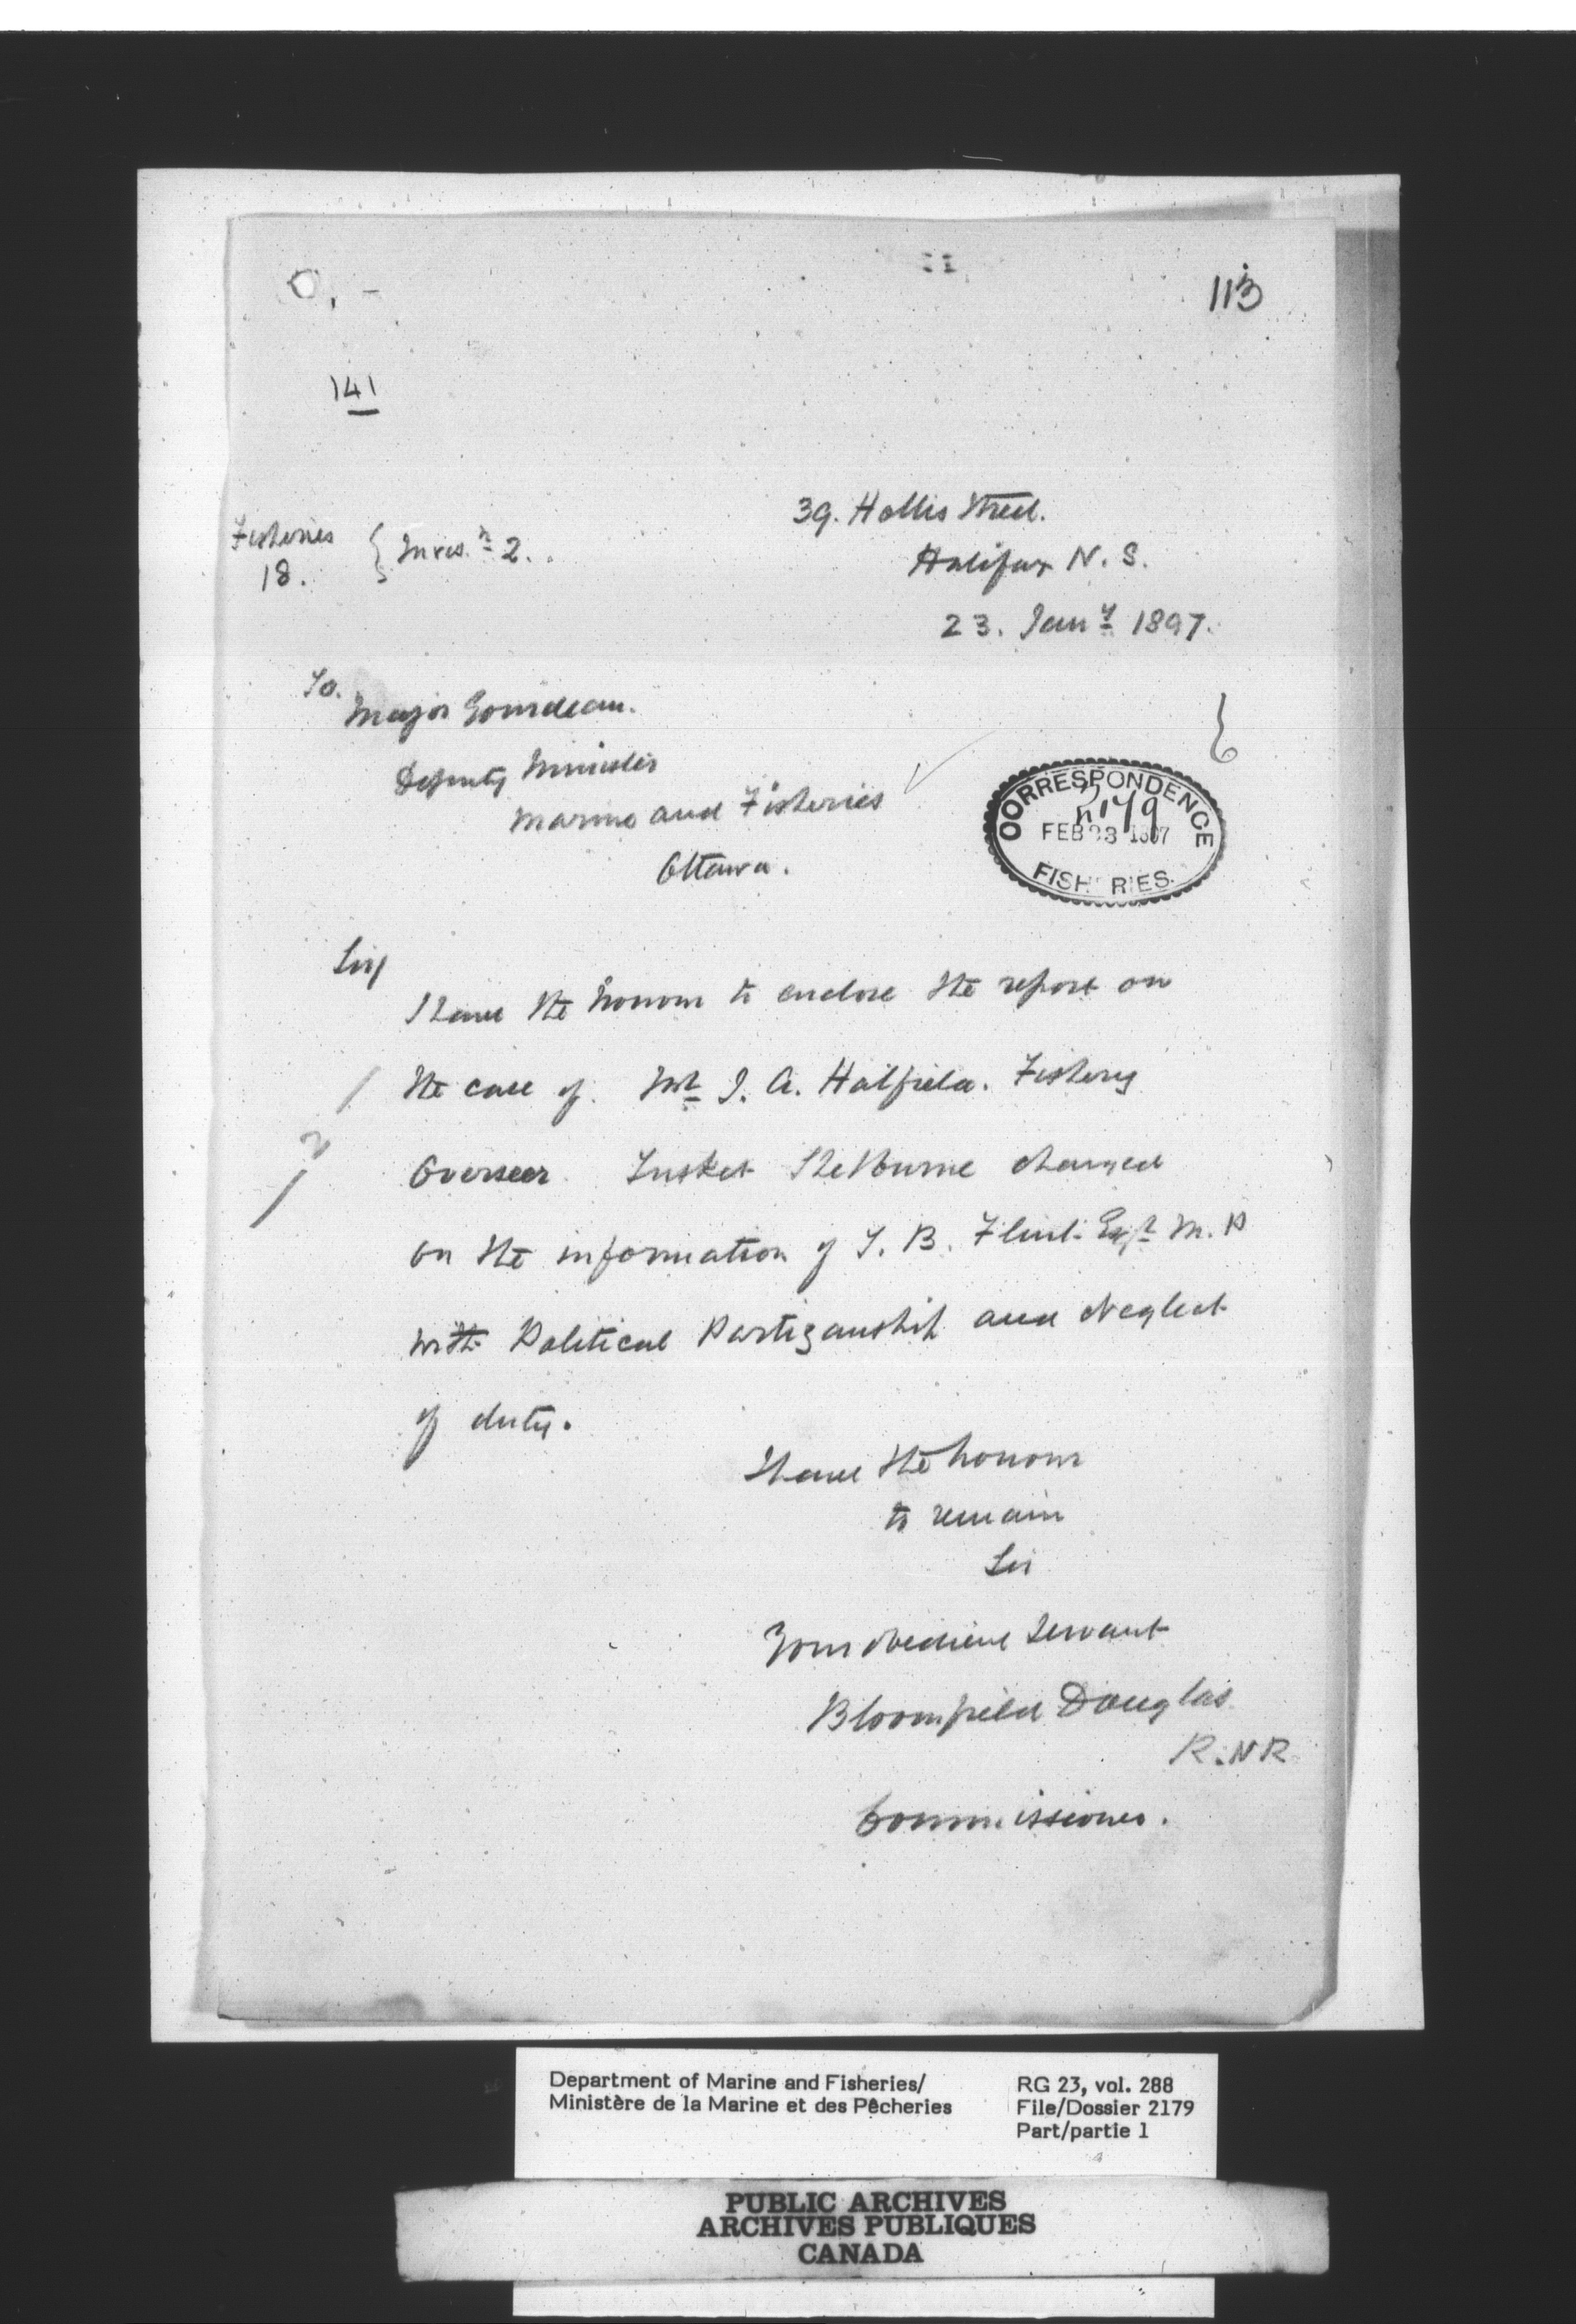 113
141
39. Hollis Street.
Fisheries
18. { Inves.n 2.
Halifax N. S.
23. Jany 1897.
To.
Major Gourdeau.
Deputy Minister
Marine and Fisheries
Ottawa.
CORRESPONDENCE
FEB 23 1897
FISHERIES.
Sir/
I have the honour to enclose the report on
the case of Mr J. A. Hatfield. Fishery
Overseer Tusket Shelburne charged
on the information of T. B. Flint Esqr M. P
with Political Partizanship and Neglect
of duty.
I have the honour
to remain
Sir
Your obedient Servant
Bloomfield Douglas
R.N R
Commissioner.
Department of Marine and Fisheries/
Ministère de la Marine et des Pêcheries
RG 23, vol. 288
File/Dossier 2179
Part/partie 1
PUBLIC ARCHIVES
ARCHIVES PUBLIQUES
CANADA